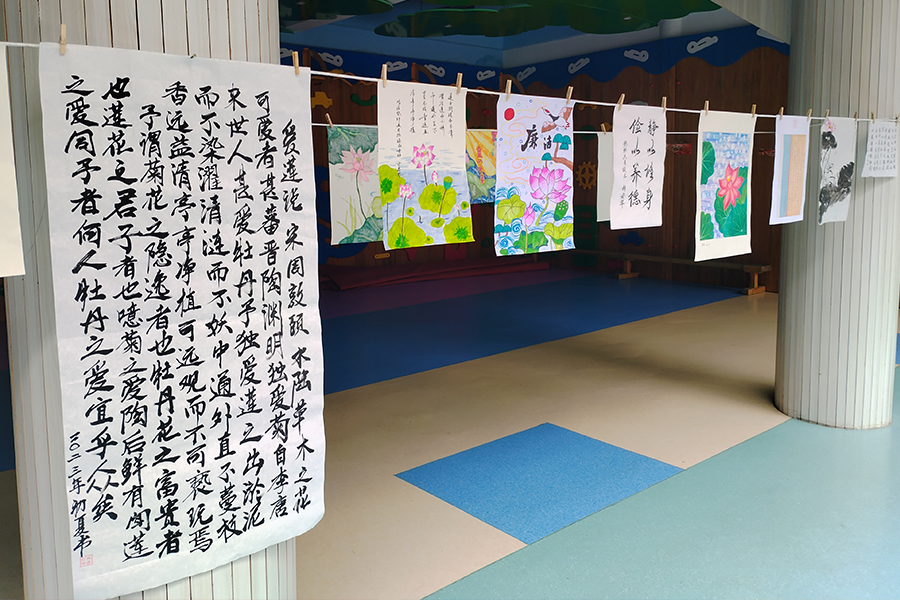 爱莲说 宋 周敦颐 水陆草木之花
可爱者甚蕃晋陶渊明独爱菊自李唐
来世人甚爱牡丹予独爱莲之出於泥
而不染濯清涟而不妖中通外直不蔓枝
香远益清亭亭净植可远观而不可亵玩焉
予谓菊花之隐逸者也牡丹花之富贵者
也莲花之君子者也噫菊之爱陶后鲜有闻莲
之爱同予者何人牡丹之爱宜乎众矣
二〇二三年初夏书
廉洁
静以修身
俭以养德